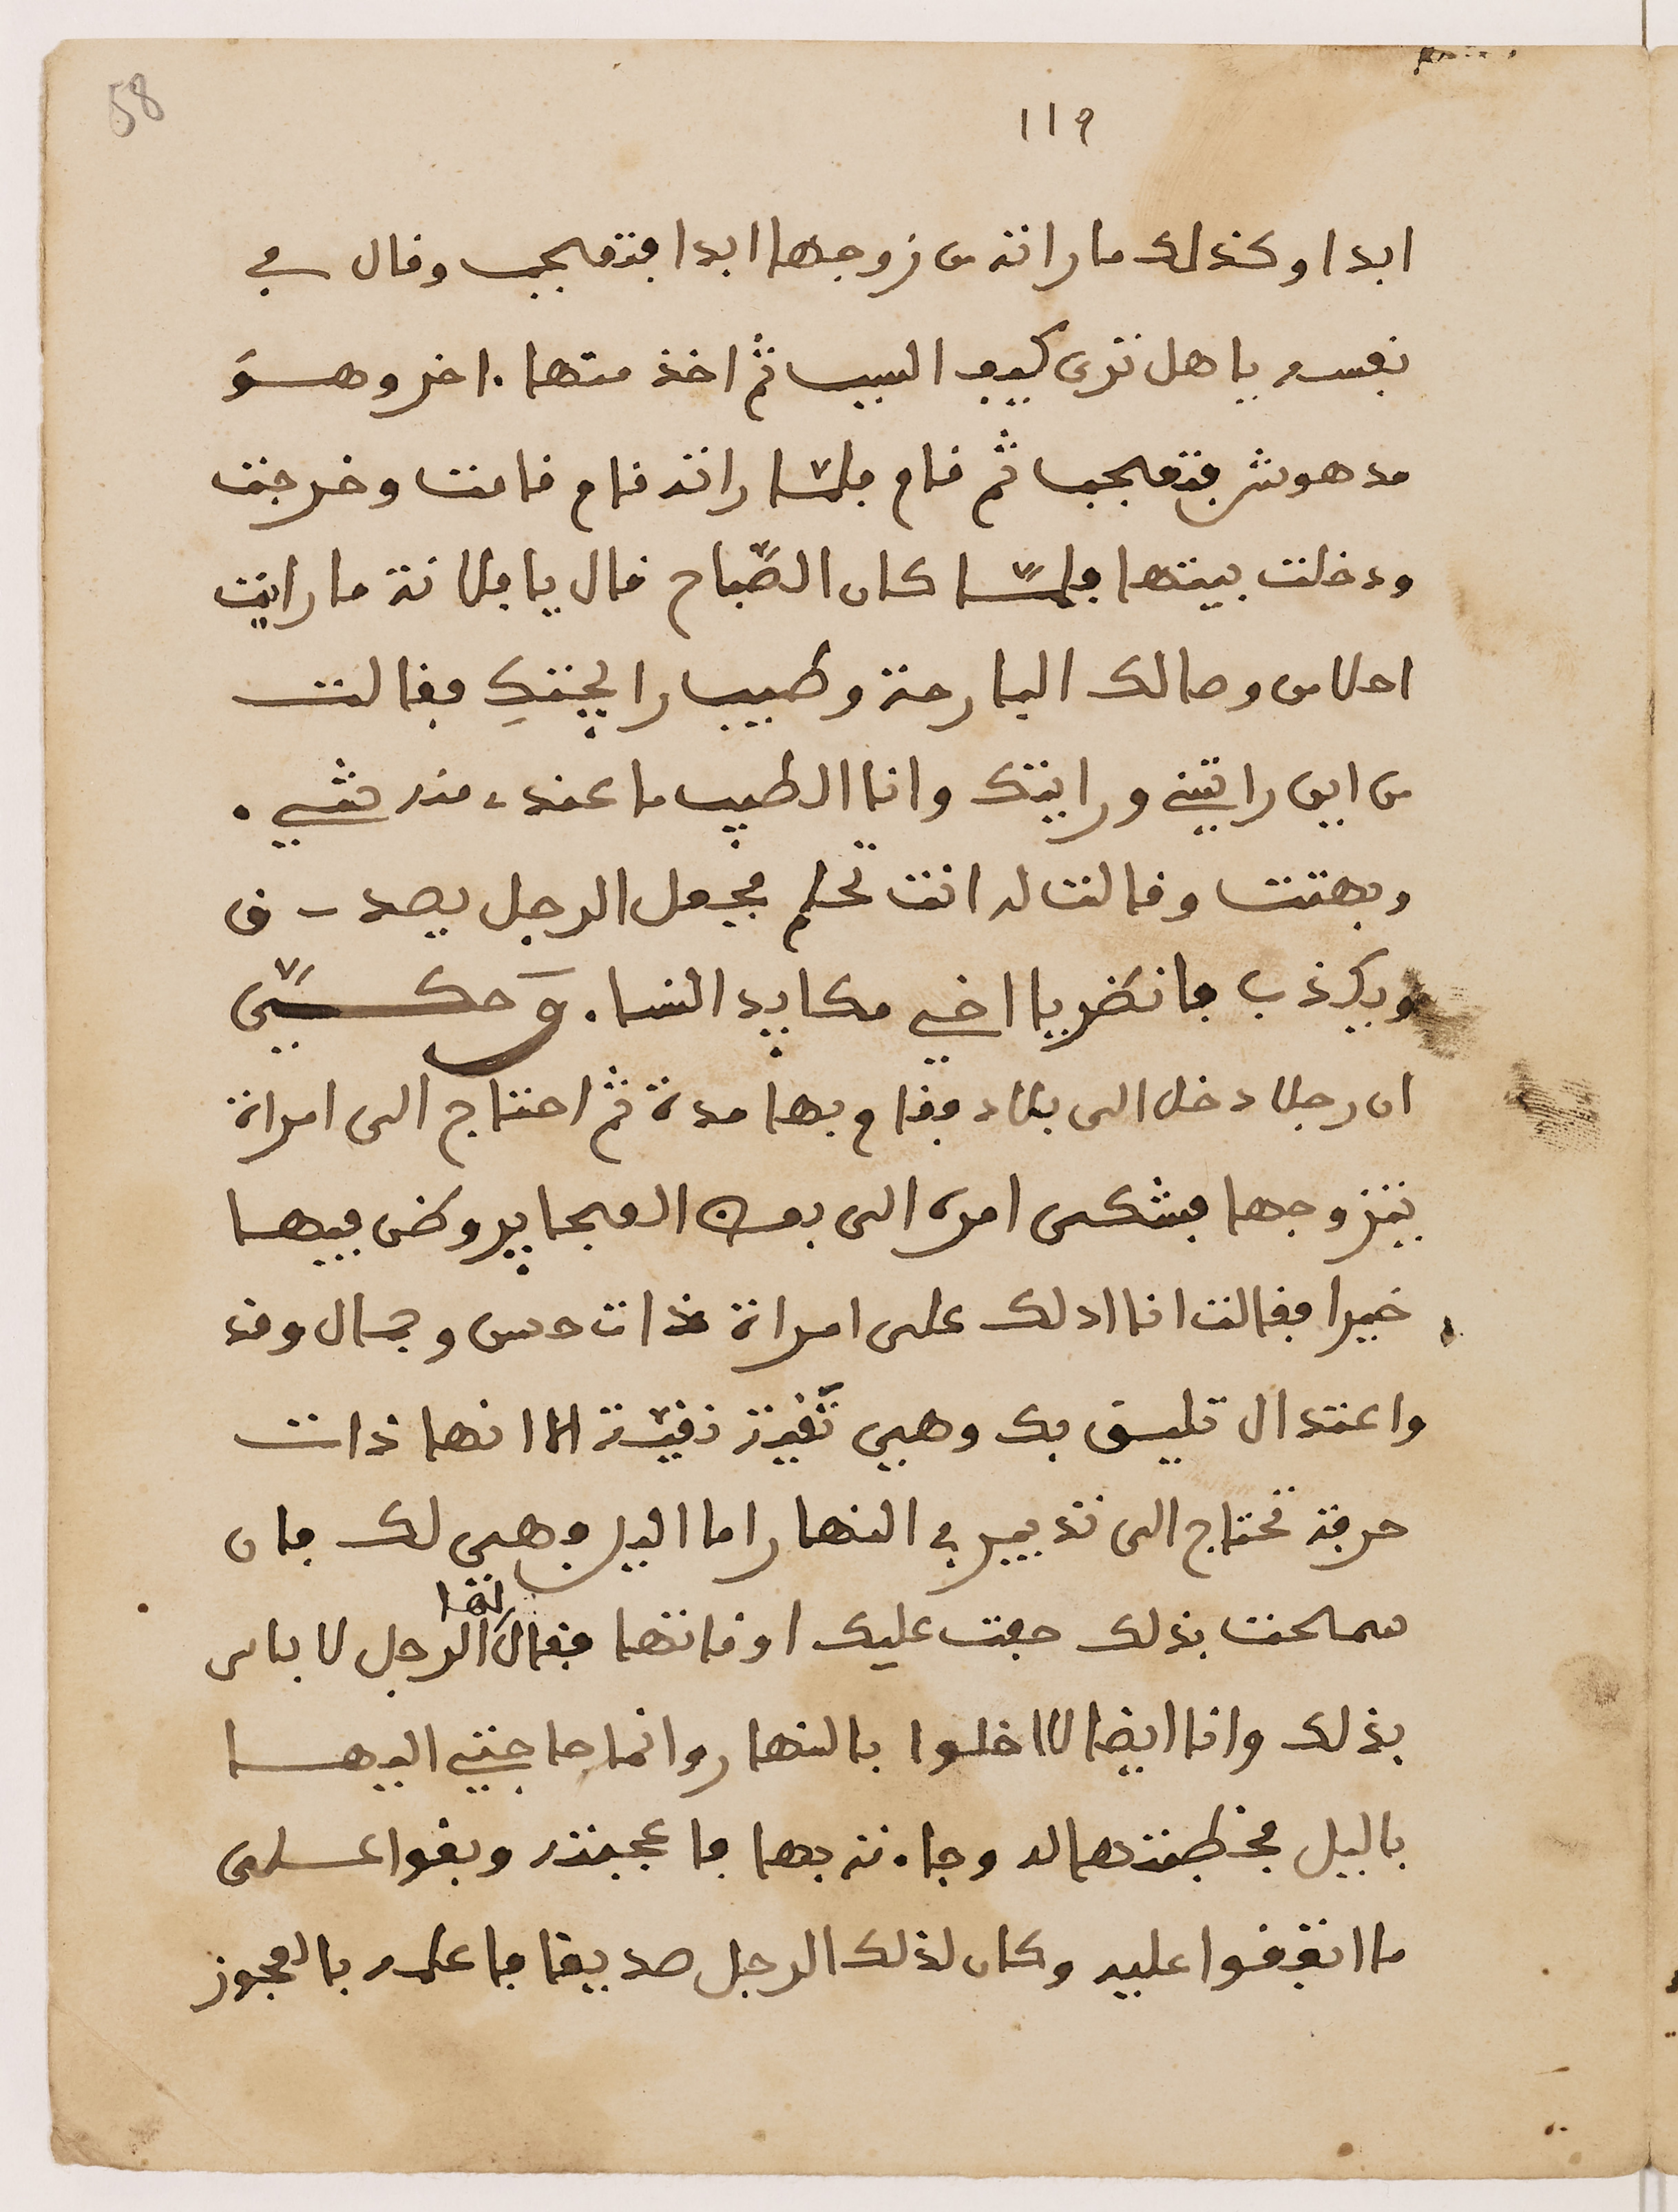 58
119
ابدا وكذلك ما راته من زوجها ابدا فتعجب وقال في
نفسه يا هل ترى كيف السبب ثم اخذ منها اخر وهو
مدهوش فتعجب ثم قام فلما راته قام قامت وخرجت
ودخلت بيتها فلما كان الصباح قال يا فلانة ما رايت
احلا من وصالك البارحة وطيب رايحتك فقالت
من اين راتيني ورايتك وانا الطيب ما عندي منه شي
وبهتت وقالت له انت تحلم فجعل الرجل يصدق
ويكذب فانظر يا اخي مكايد النساء وحكي
ان رجلا دخل الى بلاد فقام بها مدة ثم احتاج الى امراة
يتزوجها فشكى امره الى بعض العجايز وظن فيها
خيرا فقالت انا ادلك على امراة ذات حسن وجمال وقد
واعتدال تليق بك وهي تقية نقية الا انها ذات
حرفة تحتاج الى تدبير في النهار اما اليل وهي لك فان
سمحت بذلك جعت عليك اوقاتها فقال لها الرجل لا باس
بذلك وانا ايضا لا اخلوا بالنهار وانما حاجتي اليها
باليل فخطبتها له وجاءته بها فاعجبته وبقوا على
ما اتفقوا عليه وكان لذلك الرجل صديقا فاعلمه بالعجوز